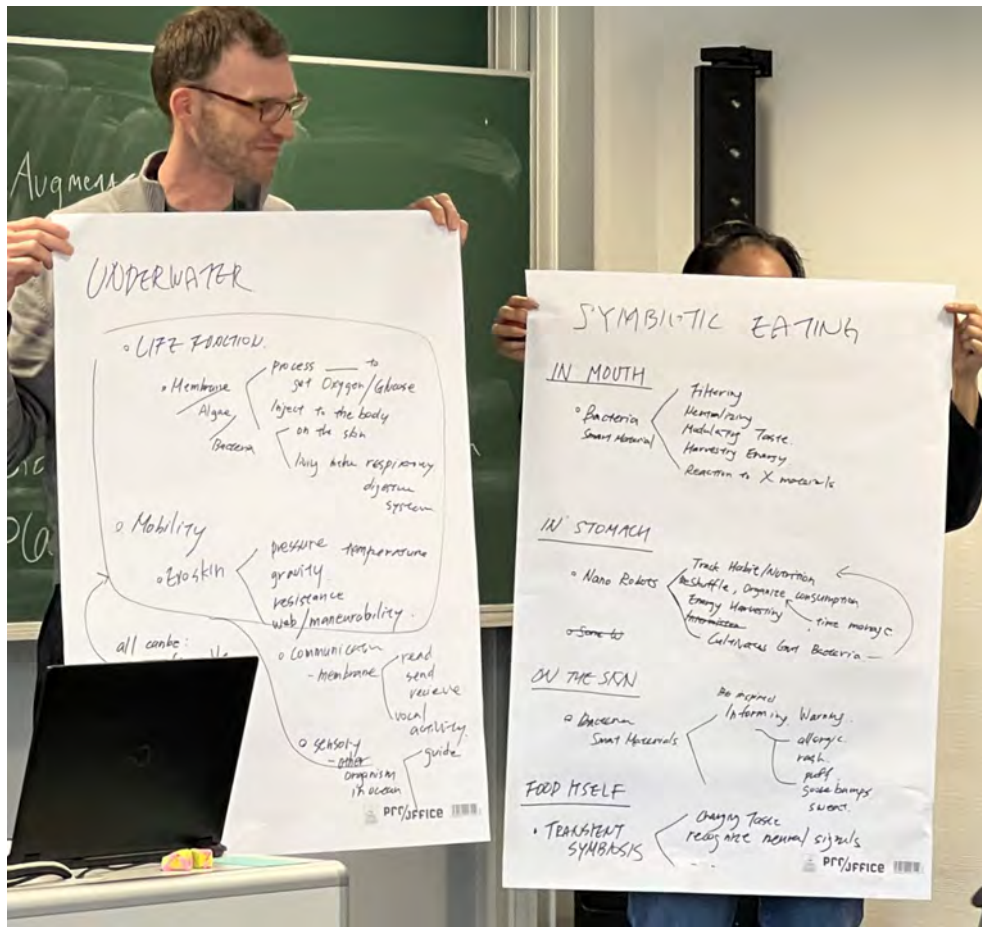 Augme
UNDERWATER
LIFE FUNCTION.
Membrane
Algae
Bacteria
process to
get Oxygen/Glucose
Inject to the body
on the skin
respiratory
digestive
system
Mobility
Exoskin
pressure temperature
gravity
resistance
web/maneurability.
all can be:
Communication
- membrane
read
send
recieve
vocal
activity.
sensory
- other
organism
in ocean
guide
prr/office
SYMBIOTIC EATING
IN MOUTH
Bacteria
Smart Material
Filtering
Neutralizing
Modulating Taste.
Harvesting Energy
Reaction to X materials
IN STOMACH
Nano Robots
Track Habit/Nutrition
Reshuffle, Organize consumption
Energy Harvesting
time manage.
Cultivates Gut Bacteria
ON THE SKIN
Bacteria
Smart Materials
Be inspired
Informing, Warning.
allergic.
rash.
puff.
goose bumps
sweat.
FOOD ITSELF
TRANSIENT
SYMBIOSIS
Changing Taste
recognize neural signals
prr/office